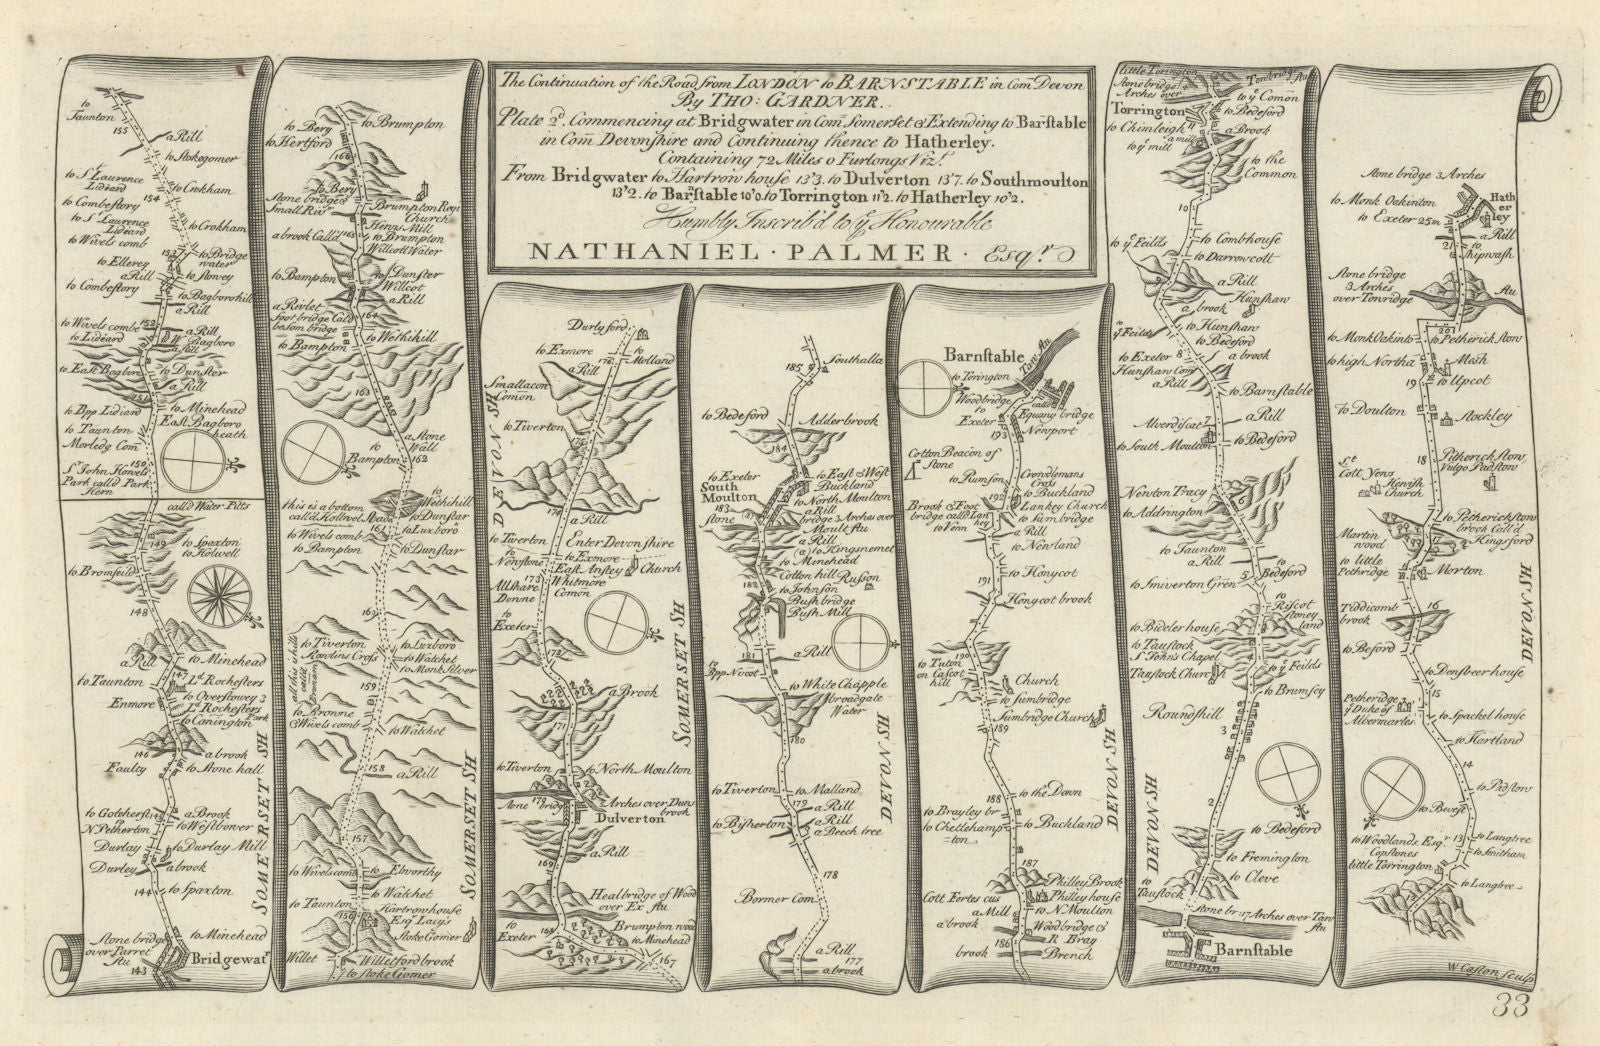 The Continuation of the Road from LONDON to BARNSTABLE in Com Devon
By THO: GARDNER.
Plate 2d. Commencing at Bridgwater in Com̄ Somerset & Extending to Barnstable
in Com̄ Devonshire and Continuing thence to Hatherley.
Containing 72 Miles 0 Furlongs Vizt.
From Bridgwater to Hartrow house 13'3. to Dulverton 13'7. to Southmoulton
13'2. to Barnstable 10'0. to Torrington 11'2. to Hatherley 10'2.
Humbly Inscrib'd to ye Honourable
NATHANIEL · PALMER · Esqr.
to Taunton
155
a Rill
to Stokegomer
to St Laurence
Lideard
to Crokham
154
to Combestory
to St Laurence
Lideard
to Crokham
to Wivels comb
to Bridge
water
to Ellerey
a Rill
to Stowey
to Combestory
to Bagborohill
a Rill
152
to Wivels combe
to Lideard
a Rill
W Bagboro
a Rill
to East Bagboro
to Dunster
a Rill
151
to Bpp Lidiard
to Minehead
to Taunton
East Bagboro
heath
Morledg Com
150
St John Howels
Park call'd Park
Hern
call'd Water Pitts
149
to Spaxton
to Holwell
to Bromfeild
148
a Rill
to Minehead
147
to Taunton
Ld Rochesters
to Overstowey &
Enmore
Ld Rochesters
to Canington Park
146
a brook
Faulcy
to Stone hall
to Gotehersts
145
a Brook
N Petherton
to Westbower
Durlay
to Durlay Mill
Durley
a brook
144
to Spaxton
Stone bridge
over Parret
flu
to Minehead
143
Bridgewatr
SOMERSET SH
to Bery
to Brumpton
to Hertford
166
to Bery
Stone bridge &
Small Rivr
Brumpton Regis
Church
Henns Mill
a brook Call'd
165
to Brumpton
Willcott Water
to Bampton
to Dunster
Willcot
a Rill
a Rivlet
foot bridge Call'd
besom bridge
164
to Bampton
to Wethihill
163
a Stone
Wall
to Bampton
162
this is a bottom
call'd Hollwel Slade
to Wethihill
to Dunstar
to Wivels comb
161
to Luxboro
to Bampton
to Dunstar
160
to Tiverton
Rowlins Cross
to Luxboro
to Watchet
to Monk Silver
159
to Bronne
& Wivels comb
to Watchet
158
a Rill
157
to Wivelscomb
to Elworthy
to Watchet
to Taunton
156
Hartrow house
Esqr Lacy's
Stoke Gomer
Willet
Willetford brook
to Stoke Gomer
SOMERSET SH
Durly ford
to Exmore
a Rill
176
to Molland
Smallacon
Comon
to Tiverton
175
DEVON SH
174
a Rill
to Tiverton
Enter Devonshire
to Nenstone
to Exmore
East Anstey
Church
173
Allshare
Donne
Whitmore
Comon
to Exeter
172
a Brook
171
to Tiverton
to North Moulton
Stone Bridg
170
Arches over Duns
brook
Dulverton
169
a Rill
Heal bridge of Wood
over Ex flu
to Exeter
168
Brumpton wood
to Minehead
167
SOMERSET SH
185
Southalla
to Bedeford
Adderbrook
184
to Exeter
South
Moulton
to East & West
Buckland
to North Moulton
183
a Rill
stone
bridge 3 Arches over
Moult flu
a Rill
(a) to Kingsnemet
to Minehead
Cotton hill
Russon
182
to Johnson
Bush bridge
Bush Mill
181
a Rill
to Bpp Nocot
to White Chapple
broadgate
Water
180
to Tiverton
to Malland
179
a Rill
to Bisherton
a Rill
a Beech tree
178
Bormer Com
a Rill
177
a brook
DEVON SH
Barnstable
to Torington
Taw flu
Woodbridge
call'd
to Exeter
Equany bridge
Newport
193
Cotton Beacon of
Stone
to Rumson
Crondlemans
Crost
192
to Buckland
Brook & Foot
bridge call'd Lan
key
Lankey Church
to Sumbridge
to Venn
a Rill
to Newland
191
to Honycot
Honycot brook
190
to Tuton
on Cascot
hill
Church
to Sumbridge
Sumbridge Church
189
188
to the Down
to Brayley br
to Chettlehamp
ton
to Buckland
187
Philley Brook
Cott Fortes cus
Philley house
a Mill
to N. Moulton
a brook
Woodbridge &
R Bray
186
brook
Brench
DEVON SH
little Torington
Towbridge flu
Stone bridge 4
Arches over
to ye Comon
Torrington
to Bedeford
to Chimleigh
a Brook
a mill
to ye mill
to the
Common
10
to ye Feilds
to Combhouse
to Darrowcott
9
a Rill
Hunshaw
a brook
ye Feilds
to Hunshaw
to Bedeford
to Exeter
8
a brook
Hunshaw Com
a Rill
to Barnstable
7
a Rill
Alverdiscat
to Bedeford
to South Moulton
Newton Tracy
6
to Addrington
to Taunton
a Rill
5
to Bedeford
to Smiverton Gren
to Riscot
Stoney
land
to Bideler house
4
to Taustock
St John's Chapel
to ye Feilds
Taustock Church
to Brumsey
Roundshill
3
2
to Bedeford
to Fremington
to Cleve
to Taustock
Stone br 17 Arches over Taw
flu
Barnstable
DEVON SH
Stone bridge 3 Arches
Hath
er
ley
to Monk Oakinton
to Exeter 25m
a Rill
21
to Shipwash
Stone bridge
3 Arches
over Tonridge
flu
20
to Monk Oakinto
to Petherick Stow
to high Northa
Mosh
19
to Upcot
to Doulton
Stockley
18
Pitherick Stow
Vulgo Padstow
St
Cott Yews
Hewish
Church
to Petherick Stow
brook Call'd
Kingsford
Martin
wood
17
to little
Pethridge
Morton
Tiddicomb
brook
16
to Beford
to Densbeer house
15
Petheridge
ye Duke of
Albermarles
to Spackel house
to Hartland
14
to Padstow
to Bewest
to Woodlands Esqr
13
to Langtree
Copstones
to Smitham
little Torrington
to Langtree
DEVON SH
W Caston sculp
33